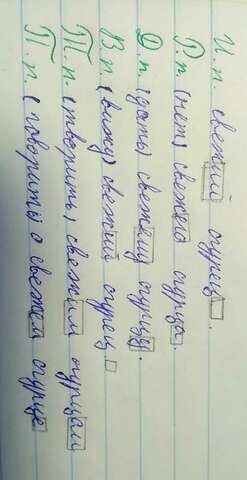 И.п. свежий огурец.
Р.п. (нет) свежего огурца.
Д.п. (дать) свежему огурцу.
В.п. (вижу) свежий огурец.
Т.п. (творить) свежим огурцам
П.п. (говорить) о свежем огурце